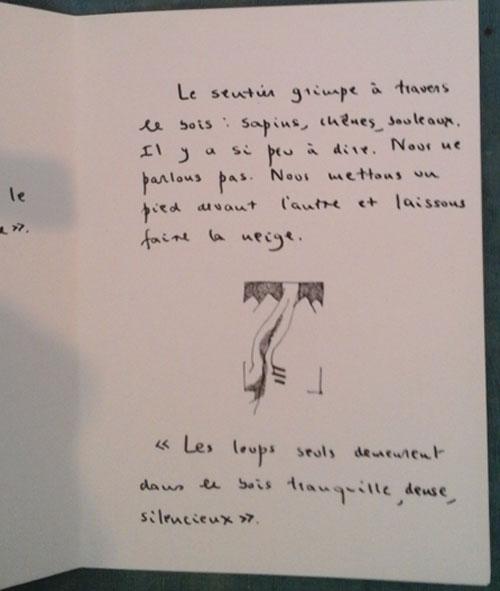 le
».
Le sentier grimpe à travers
le bois : sapins, chênes, bouleaux.
Il y a si peu à dire. Nous ne
parlons pas. Nous mettons un
pied devant l'autre et laissons
faire la neige.
« Les loups seuls demeurent
dans le bois tranquille, dense,
silencieux ».